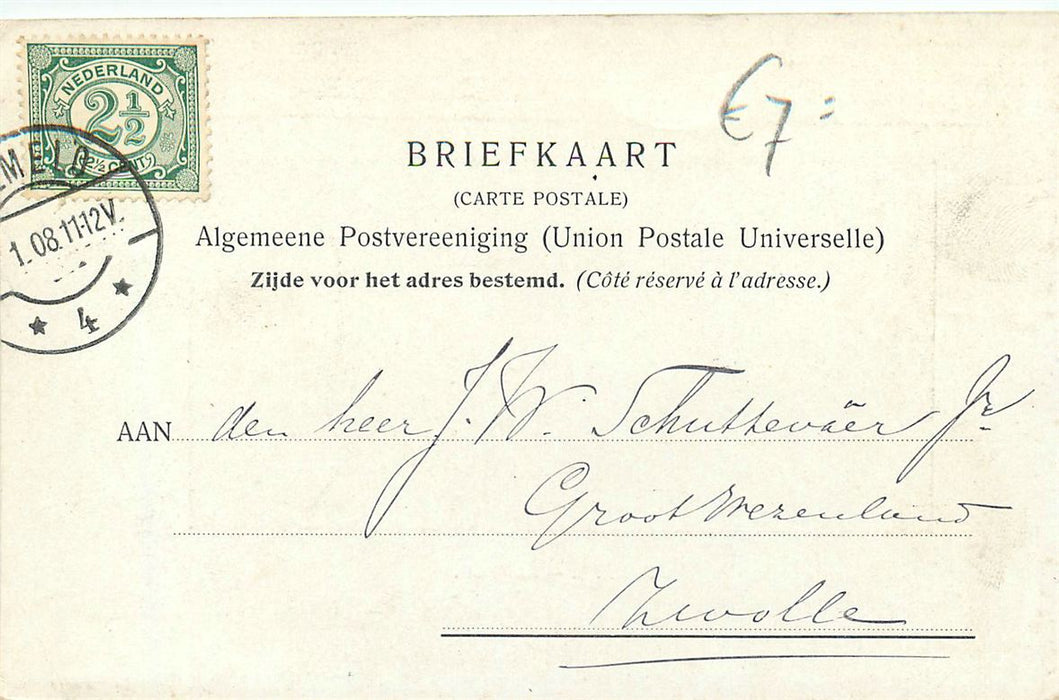 NEDERLAND
2½
(2½ CENT)
1.08.11-12V.
4
€7=
BRIEFKAART
(CARTE POSTALE)
Algemeene Postvereeniging (Union Postale Universelle)
Zijde voor het adres bestemd. (Côté réservé à l'adresse.)
AAN den heer J. W. Schuttevâer Jr.
Groot Wezenland
Zwolle